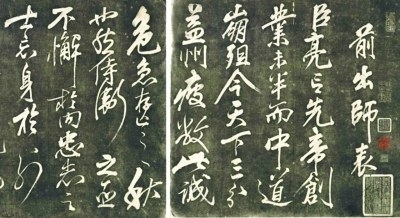 前出師表
臣亮言先帝創
業未半而中道
崩殂今天下三分
益州疲敝此誠
危急存亡之秋
也然侍衛之臣
不懈於内忠志之
士忘身於外